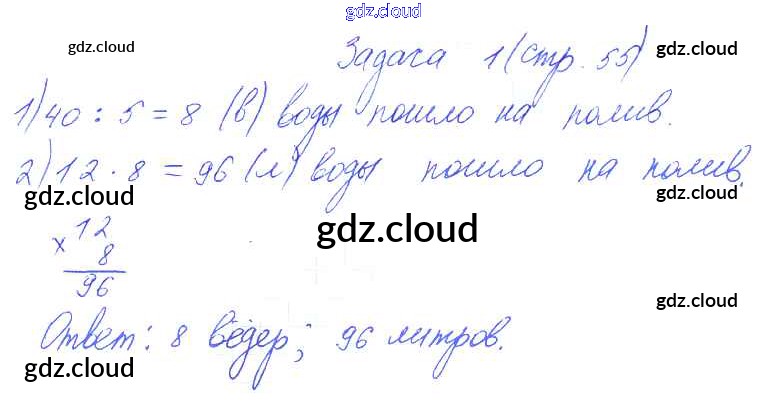 gdz.cloud
gdz.cloud
Задача 1 (стр. 55) gdz.cloud
1) 40 : 5 = 8 (в) воды пошло на полив.
2) 12 · 8 = 96 (л) воды пошло на полив.
gdz.cloud gdz.cloud
× 12
gdz.cloud
8
96
gdz.cloud
Ответ: 8 вёдер; 96 литров.
gdz.cloud gdz.cloud